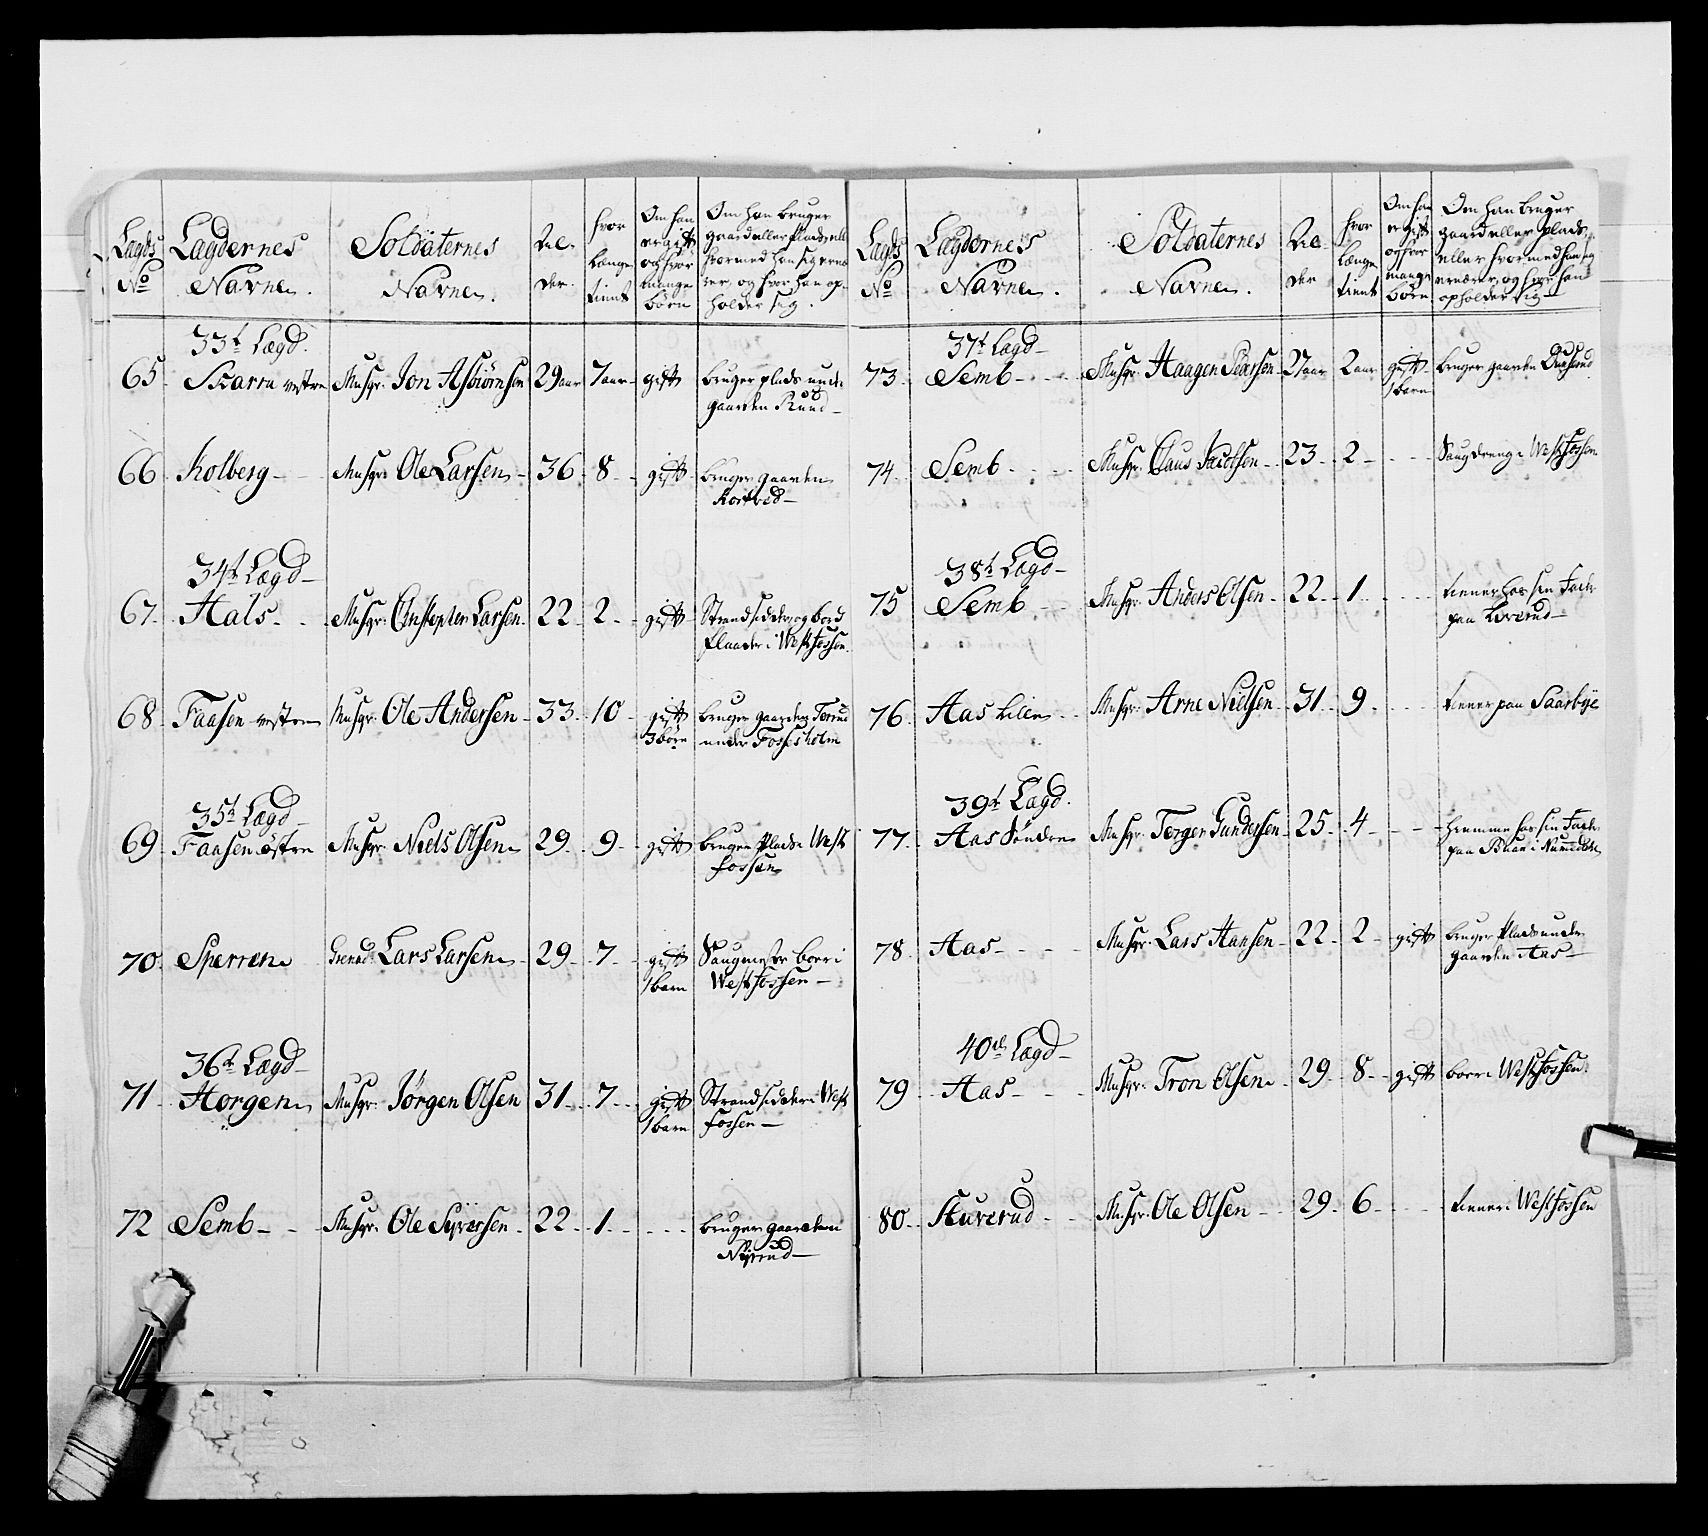 Lægds No | Lægdernes Navne. | Soldaternes Navne. | Alder. | hvor længe tient | Om han er gift og hvor mange børn | Om han bruger gaard eller Plads, ell hvormed han sig ernærer, og hvor han opholder sig.
33t Lægd.
65 Skarra vestre Musqr: Jon Asbiørnsen 29 aar 7 aar gift bruger plads unde
gaarden Ruud
66 Kolberg Musqr: Ole Larsen 36 8 gift bruger gaarden
34t Lægd
67 Hals Musqr: Christopher Larsen 22 2 gift Strandsidder og bord
i Westfossen
68 Faasen vestre Musqr: Ole Andersen 33 10 gift bruger gaarden
3 børn under Fossesholm
35t Lægd
69 Faasen østre Musqr: Niels Olsen 29 9 gift bruger Plads West
fossen
70 Sperren Grenad: Lars Larsen 29 7 gift Saugmester boer i
1 barn Westfossen
36t Lægd
71 Horgen Musqr: Jørgen Olsen 31 7 gift Strandsidder i West
1 barn fossen
72 Semb Musqr: Ole Syversen 22 1 bruger gaarden
Nyrud
Lægds No | Lægdernes Navne. | Soldaternes Navne. | Alder | hvor længe tient | Om han er gift og hvor mange børn | Om han bruger gaard eller plads, eller hvormed han sig ernærer, og hvor han opholder sig
37t Lægd
73 Semb Musqr: Haagen Pedersen 27 aar 2 aar gift bruger gaarden
1 barn
74 Semb Musqr: Claus Jacobsen 23 2 Saugdreng i Westfossen
38t Lægd
75 Semb Musqr: Anders Olsen 22 1 tiener hos sin Fader
paa
76 Aas lille Musqr: Arne Nielsen 31 9 tiener paa Saarbye
39t Lægd.
77 Aas Søndre Musqr: Torger Gundersen 25 4 hiemme hos sin Fader
paa i Numedal
78 Aas Musqr: Lars Hansen 22 2 gift bruger Plads under
gaarden Aas
40de Lægd
79 Aas Musqr: Tron Olsen 29 8 gift boer i Westfossen
80 Stuverud Musqr: Ole Olsen 29 6 tiener i Westfossen